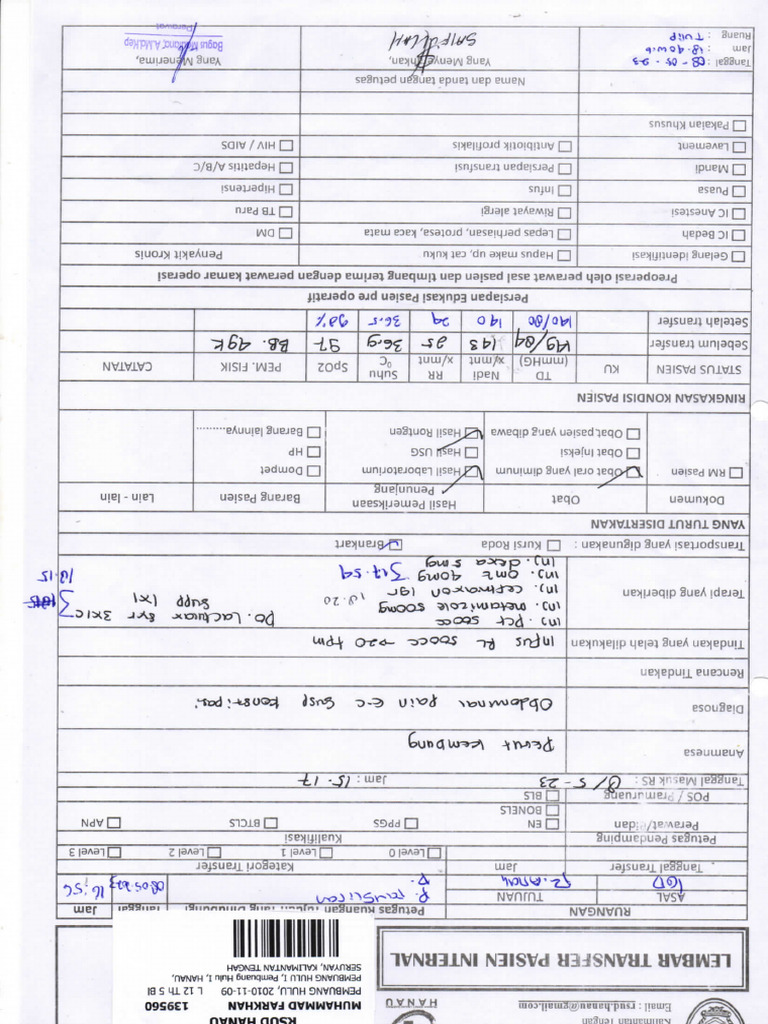 Kalimantan Tengah
Email : rsud.hanau@gmail.com
HANAU
LEMBAR TRANSFER PASIEN INTERNAL
RSUD HANAU
MUHAMMAD FARKHAN 139560
PEMBUANG HULU, 2010-11-09 L 12 Th 5 Bl
PEMBUANG HULU I, Pembuang Hulu I, HANAU,
SERUYAN, KALIMANTAN TENGAH
RUANGAN
Tanggal Jam
ASAL TUJUAN
IGD R. Anak
08.05.2023 16:56
Tanggal Transfer Jam Kategori Transfer
Level 0 Level 1 Level 2 Level 3
Petugas Pendamping Kualifikasi
Perawat/Bidan EN PPGS BTCLS APN
BONELS
POS / Pramuruang BLS
Tanggal Masuk RS : 8/5-23 Jam : 15.17
Anamnesa Perut kembung
Diagnosa Obdominal pain e.c susp konstipasi
Rencana Tindakan
Tindakan yang telah dilakukan Infus RL 500cc → 20 tpm
Terapi yang diberikan inj. pct 500cc
inj. metamizole 500mg 18.20
inj. ceftriaxon 1gr
inj. omz 40mg 17.59
inj. dexa 5mg
Po. Lactulax syr 3x1c
supp 1x1
18.15
Transportasi yang digunakan : Kursi Roda Brankart
YANG TURUT DISERTAKAN
Dokumen Obat Hasil Pemeriksaan Penunjang Barang Pasien Lain - lain
RM Pasien Obat oral yang diminum Hasil Laboratorium Dompet
Obat Injeksi Hasil USG HP
Obat pasien yang dibawa Hasil Rontgen Barang lainnya.........
RINGKASAN KONDISI PASIEN
STATUS PASIEN KU TD (mmHG) Nadi x/mnt RR x/mnt Suhu ⁰C SpO2 PEM. FISIK CATATAN
Sebelum transfer 149/84 143 25 36,9 97 BB. 49K
Setelah transfer 140/80 140 24 36.5 98%
Persiapan Edukasi Pasien pre operatif
Preoperasi oleh perawat asal pasien dan timbang terima dengan perawat kamar operasi
Gelang identifikasi Hapus make up, cat kuku Penyakit Kronis
IC Bedah Lepas perhiasan, protesa, kaca mata DM
IC Anestesi Riwayat alergi TB Paru
Puasa Infus Hipertensi
Mandi Persiapan transfusi Hepatitis A/B/C
Lavement Antibiotik profilakis HIV / AIDS
Pakaian Khusus
Nama dan tanda tangan petugas
Tanggal : 08-05-23 Yang Menyerahkan, Yang Menerima,
Jam : 18.40 wib
Ruang : TULIP
SAIFULLAH
Perawat